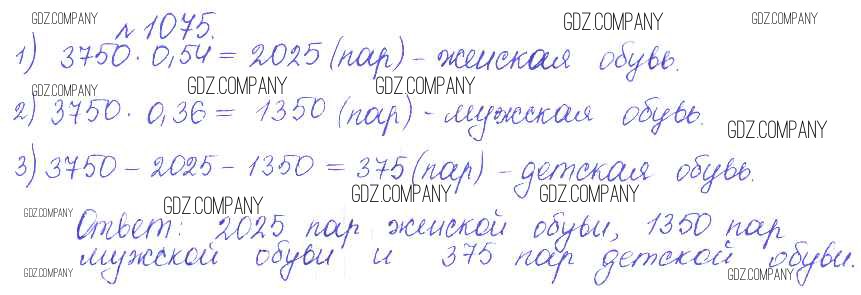 GDZ.COMPANY № 1075. GDZ.COMPANY GDZ.COMPANY
1) 3750 · 0,54 = 2025 (пар) - женская обувь.
GDZ.COMPANY GDZ.COMPANY GDZ.COMPANY
2) 3750 · 0,36 = 1350 (пар) - мужская обувь.
GDZ.COMPANY
3) 3750 - 2025 - 1350 = 375 (пар) - детская обувь.
GDZ.COMPANY GDZ.COMPANY GDZ.COMPANY GDZ.COMPANY
Ответ: 2025 пар женской обуви, 1350 пар
мужской обуви и 375 пар детской обуви.
GDZ.COMPANY GDZ.COMPANY